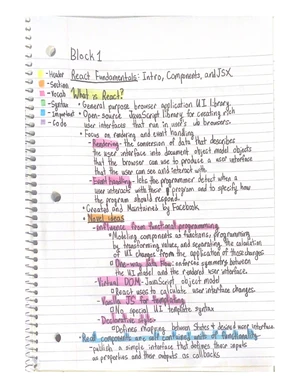 Block 1
- Header
- Section
- Vocab
- Syntax
- Important
- Code
React Fundamentals: Intro, Components, and JSX
What is React?
• General purpose browser application UI Library.
• Open-source JavaScript library for creating rich
user interfaces that run in users' web browsers.
• Focus on rendering and event handling
- Rendering- the conversion of data that describes
the user interface into document object model objects
that the browser can use to produce a user interface
that the user can see and interact with
- Event handling- lets the programmer detect when a
user interacts with their program and to specify how
the program should respond.
• Created and Maintained by Facebook
• Novel ideas
- Influence from functional programming
Modeling components as functions; programming
by transforming values, and separating the calculation
of UI changes from the application of those changes
One-way data flow: enforces symmetry between
the UI model and the rendered user interface.
- Virtual DOM- JavaScript object model
React uses to calculate user interface changes.
- Vanilla JS for templating
No special UI template syntax
- Declarative style
Defines mapping between states + desired user interface
• React components are self contained units of functionality
- publish a simple interface that defines their inputs
as properties and their outputs as callbacks